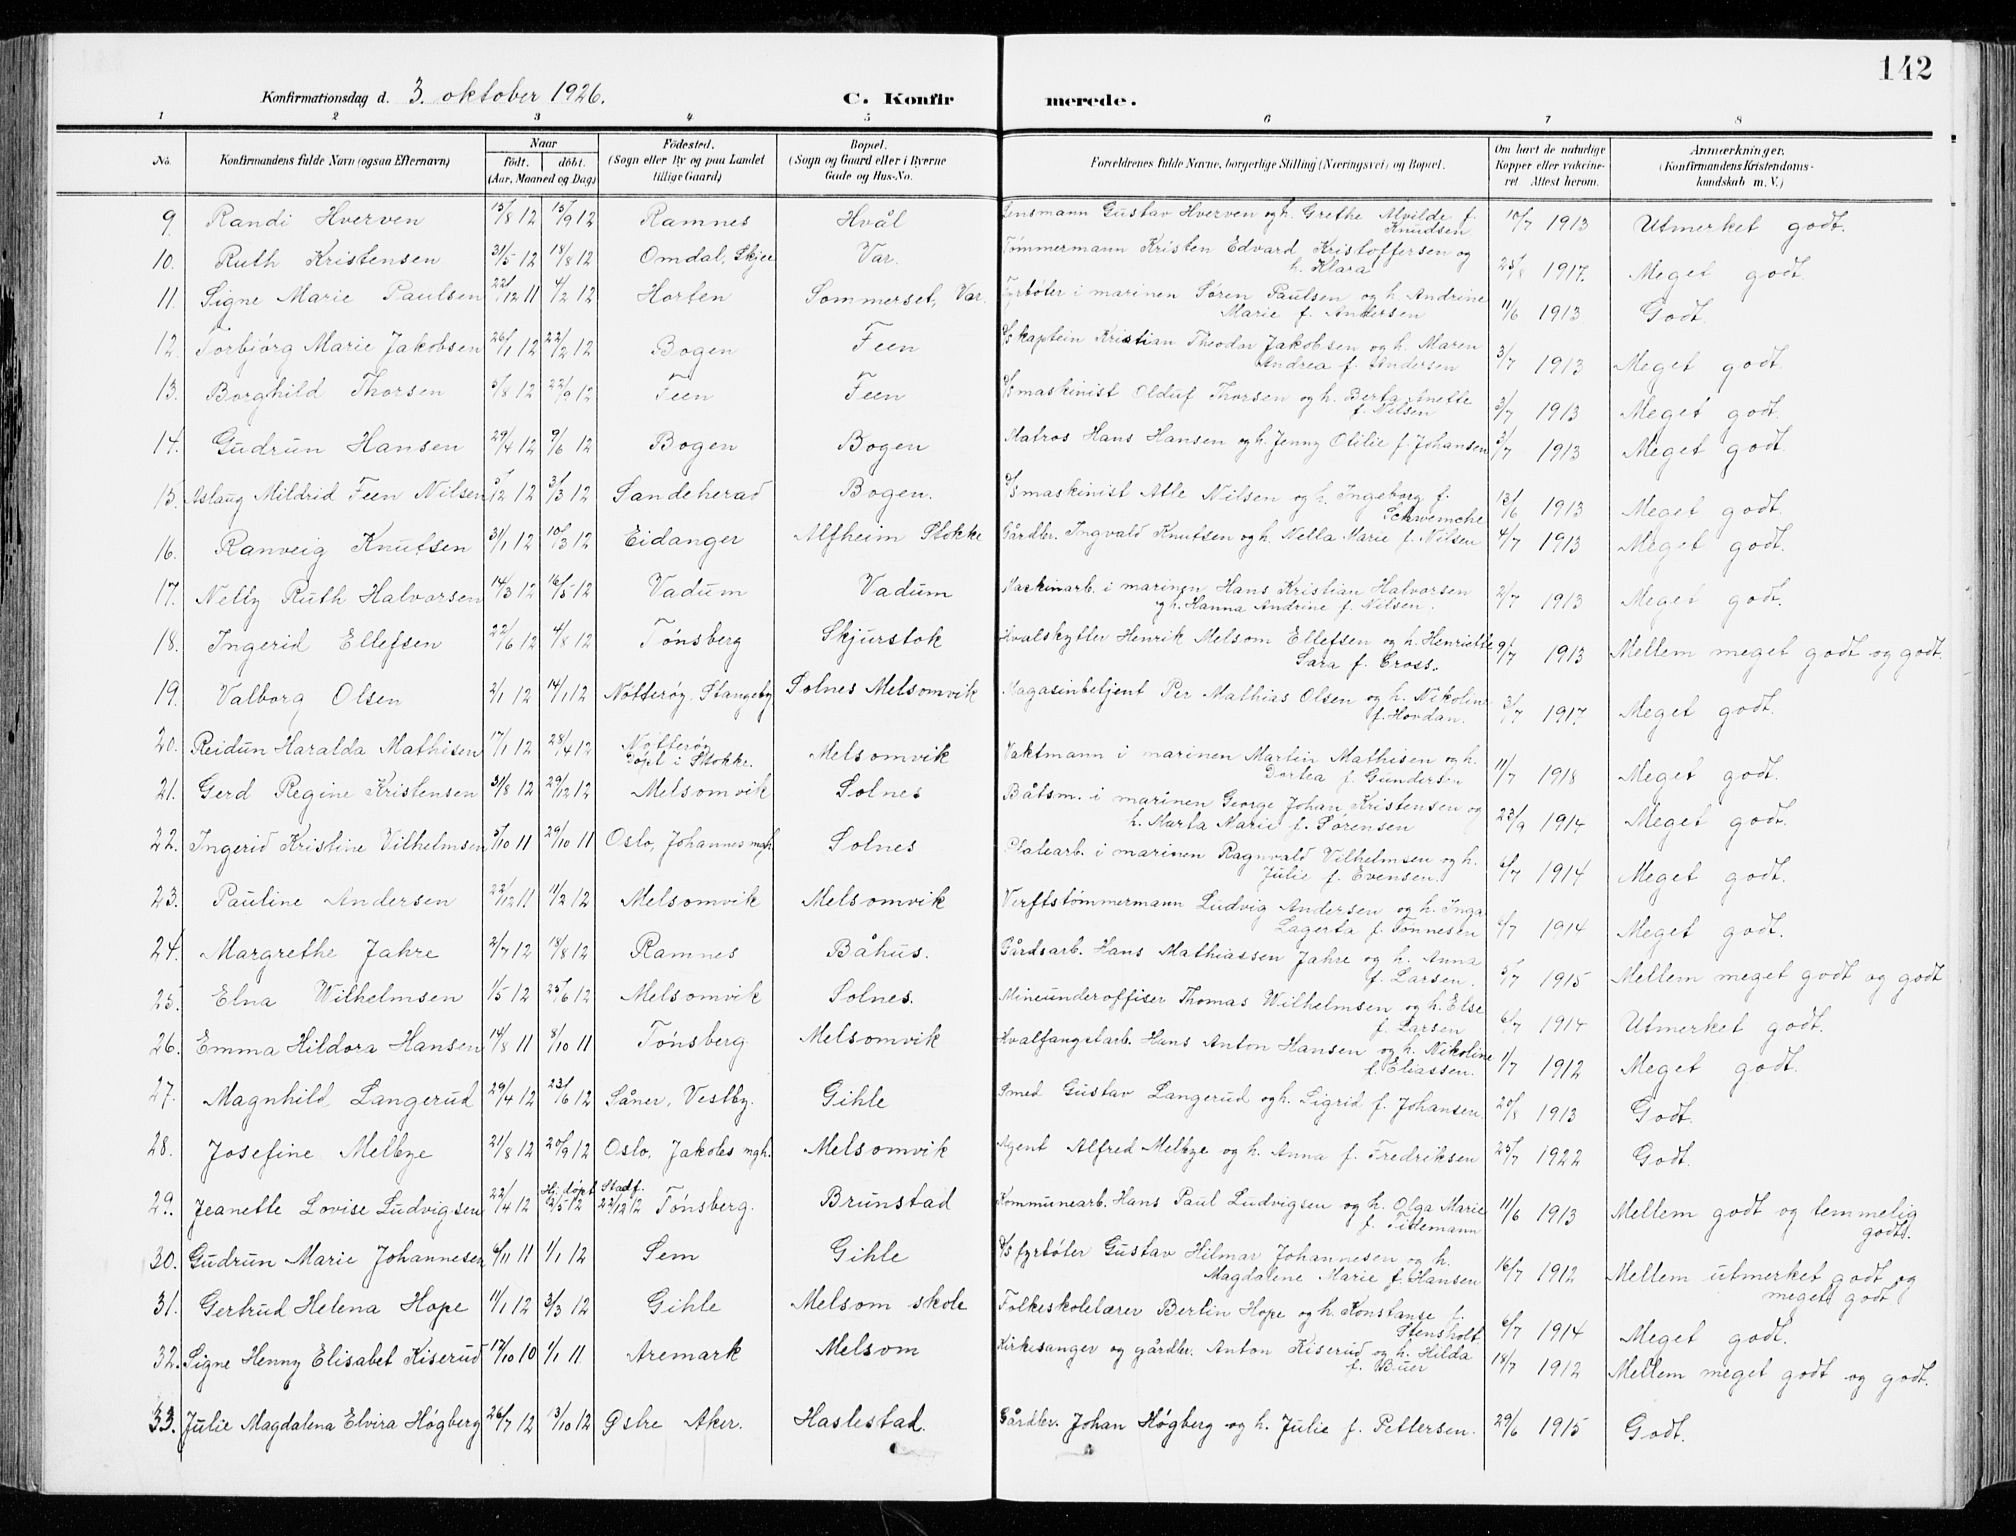 142
Konfirmationsdag d. 3. oktober 1926. C. Konfir merede.
1 2 3 4 5 6 7 8
No. Konfirmandens fulde Navn (ogsaa Efternavn) Naar født. døbt. (Aar, Maaned og Dag) Fødested. (Sogn eller By og paa Landet tillige Gaard) Bopæl. (Sogn og Gaard eller i Byerne Gade og Hus-No. Forældrenes fulde Navne, borgerlige Stilling (Næringsvei) og Bopæl. Om havt de naturlige Kopper eller vaccineret Attest herom. Anmærkninger. (Konfirmandens Kristendomskundskab m. V.)
9. Randi Hverven 15/8 12 15/9 12 Ramnes Hvål Lensmann Gustav Hverven og h. Grethe Alvilde f. Knudsen 10/7 1913 Utmerket godt.
10. Ruth Kristensen 31/5 12 18/8 12 Omdal, Skjee Var. Tømmermann Kristen Edvard Kristoffersen og h. Klara 25/8 1917. Meget godt.
11. Signe Marie Paulsen 22/12 11 4/2 12 Horten Sommerset, Var. Fyrbøter i marinen Søren Paulsen og h. Andrine Marie f. Andersen 11/6 1913 Godt.
12. Torbjørg Marie Jakobsen 26/1 12 22/2 12 Bogen Feen S/S kaptein Kristian Theodor Jakobsen og h. Maren Andrea f. Andersen 3/7 1913 Meget godt.
13. Borghild Thorsen 5/8 12 22/9 12 Feen Feen S/S maskinist Olduf Thorsen og h. Berta Anette f. Nilsen 3/7 1913 Meget godt.
14. Gudrun Hansen 29/4 12 9/6 12 Bogen Bogen Matros Hans Hansen og h. Jenny Otilie f. Johansen 3/7 1913 Meget godt.
15. Aslaug Mildrid Feen Nilsen 5/2 12 3/3 12 Sandeherad Bogen. S/S maskinist Atle Nilsen og h. Ingeborg f. Schwencke 13/6 1913 Meget godt.
16. Ranveig Knutsen 31/1 12 10/3 12 Eidanger Alfheim Stokke Gårdbr. Ingvald Knutsen og h. Nella Marie f. Nilsen 4/7 1913 Meget godt.
17. Nelly Ruth Halvorsen 14/3 12 16/5 12 Vadum Vadum Maskinarb. i marinen Hans Kristian Halvorsen og h. Hanna Andrine f. Nilsen. 2/7 1913 Meget godt.
18. Ingerid Ellefsen 22/6 12 4/8 12 Tønsberg Skjurstok Hvalskytter Henrik Melsom Ellefsen og h. Henriette Sara f. Cross. 9/7 1913 Mellem meget godt og godt.
19. Valborg Olsen 2/1 12 14/1 12 Nøtterøy. Stangeby Solnes Melsomvik Magasinbetjent Per Mathias Olsen og h. Nikoline f. Hovdan. 3/7 1917. Meget godt.
20. Reidun Haralda Mathisen 17/1 12 28/4 12 Nøtterøy Døpt i Stokke. Melsomvik Vaktmann i marinen Martin Mathisen og h. Dortea f. Gundersen 11/7 1918 Meget godt.
21. Gerd Regine Kristensen 31/8 12 29/12 12 Melsomvik Solnes Båtsm. i marinen George Johan Kristensen og h. Marta Marie f. Sørensen 23/9 1914 Meget godt.
22. Ingerid Kristine Vilhelmsen 5/10 11 29/10 11 Oslo, Johannes mgh. Solnes Platearb. i marinen Ragnvald Vilhelmsen og h. Julie f. Evensen. 6/7 1914 Meget godt.
23. Pauline Andersen 22/12 11 11/2 12 Melsomvik Melsomvik Verftstømmermann Ludvig Andersen og h. Inga Lagerta f. Tønnesen 6/7 1914 Meget godt.
24. Margrethe Jahre 2/7 12 18/8 12 Ramnes Båhus. Gårdsarb. Hans Mathiassen Jahre og h. Anna f. Larsen. 5/7 1915 Mellem meget godt og godt
25. Elna Wilhelmsen 1/5 12 25/6 12 Melsomvik Solnes. Mineunderoffiser Thomas Wilhelmsen og h. Else f. Larsen 6/7 1914 Utmerket godt.
26. Emma Hildora Hansen 14/8 11 8/10 11 Tønsberg Melsomvik Hvalfangstarb. Hans Anton Hansen og h. Nikoline f. Eliassen. 1/7 1912 Meget godt.
27. Magnhild Langerud 29/4 12 23/6 12 Såner, Vestby. Gihle Smed Gustav Langerud og h. Sigrid f. Johansen. 20/8 1913 Godt.
28. Josefine Melbye 21/8 12 20/9 12 Oslo, Jakobs mgh. Melsomvik Agent Alfred Melbye og h. Anna f. Fredriksen 25/7 1922 Godt.
29. Jeanette Lovise Ludvigsen 22/4 12 Hj. døpt 12/5 12 Stadf. 22/12 12 Tønsberg. Brunstad Kommunearb. Hans Paul Ludvigsen og h. Olga Marie f. Tidemann 11/6 1913 Mellem godt og temmelig godt.
30. Gudrun Marie Johannesen 6/11 11 1/1 12 Sem Gihle S/S fyrbøter Gustav Hilmar Johannesen og h. Magdalene Marie f. Hansen 16/7 1912 Mellem utmerket godt og meget godt
31. Gertrud Helena Hope 11/1 12 3/3 12 Gihle Melsom skole Folkeskolelærer Bertin Hope og h. Konstanse f. Stensholt 6/7 1914 Meget godt.
32. Signe Henny Elisabet Kiserud 17/10 10 1/1 11 Aremark Melsom Kirkesanger og gårdbr. Anton Kiserud og h. Hilda f. Buer 18/7 1912 Mellem meget godt og godt.
33. Julie Magdalena Elvira Høgberg 26/7 12 13/10 12 Østre Aker. Haslestad. Gårdbr. Johan Høgberg og h. Julie f. Pettersen. 29/6 1915 Godt.